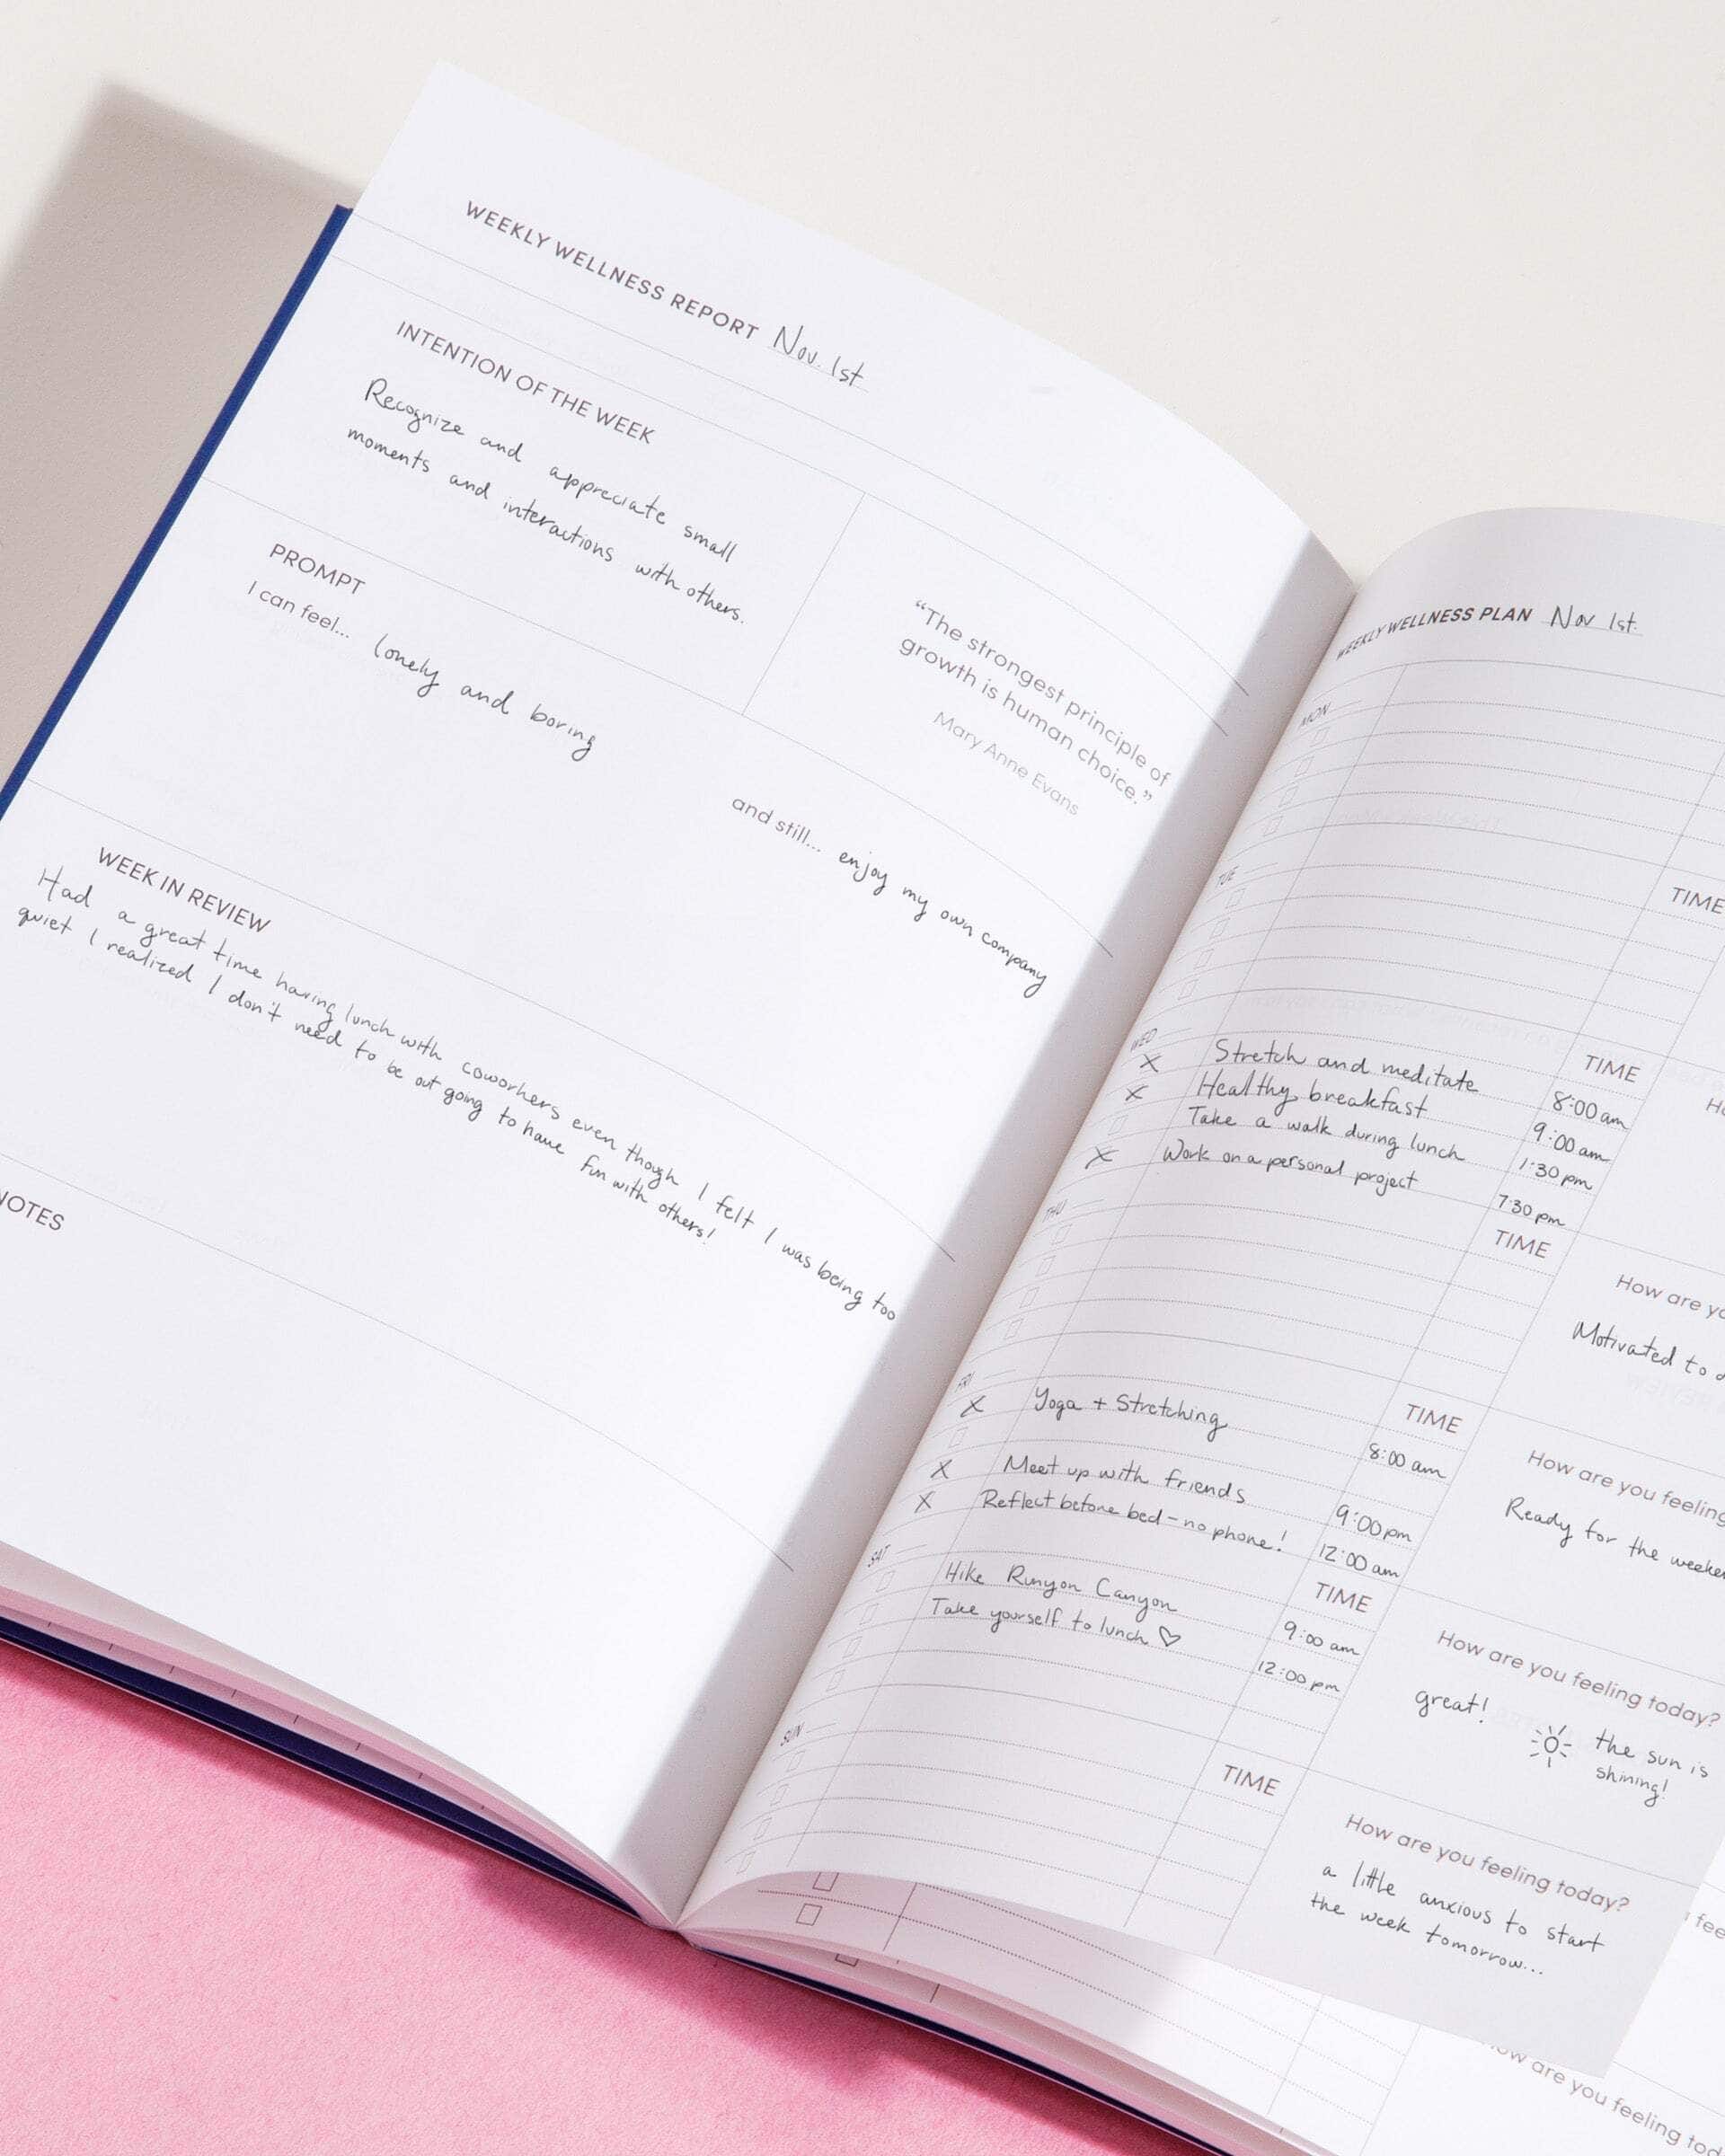 WEEKLY WELLNESS REPORT Nov. 1st
INTENTION OF THE WEEK
Recognize and appreciate small
moments and interactions with others.
"The strongest principle of
growth is human choice."
Mary Anne Evans
PROMPT
I can feel... lonely and boring
and still... enjoy my own company
WEEK IN REVIEW
Had a great time having lunch with coworkers even though I felt I was being too
quiet I realized I don't need to be out going to have fun with others!
NOTES
WEEKLY WELLNESS PLAN Nov 1st.
MON
TIME
TUE
TIME
WED
X Stretch and meditate 8:00 am
X Healthy breakfast 9:00 am
Take a walk during lunch 1:30 pm
X Work on a personal project 7:30 pm
THU
TIME
How are yo
Motivated to
FRI
TIME
X Yoga + Stretching 8:00 am
X Meet up with friends 9:00 pm
X Reflect before bed - no phone! 12:00 am
How are you feeling
Ready for the weeke
SAT
TIME
Hike Runyon Canyon 9:00 am
Take yourself to lunch ♡ 12:00 pm
How are you feeling today?
great!
the sun is
shining!
SUN
TIME
How are you feeling today?
a little anxious to start
the week tomorrow...
fee
ow are you feeling tod